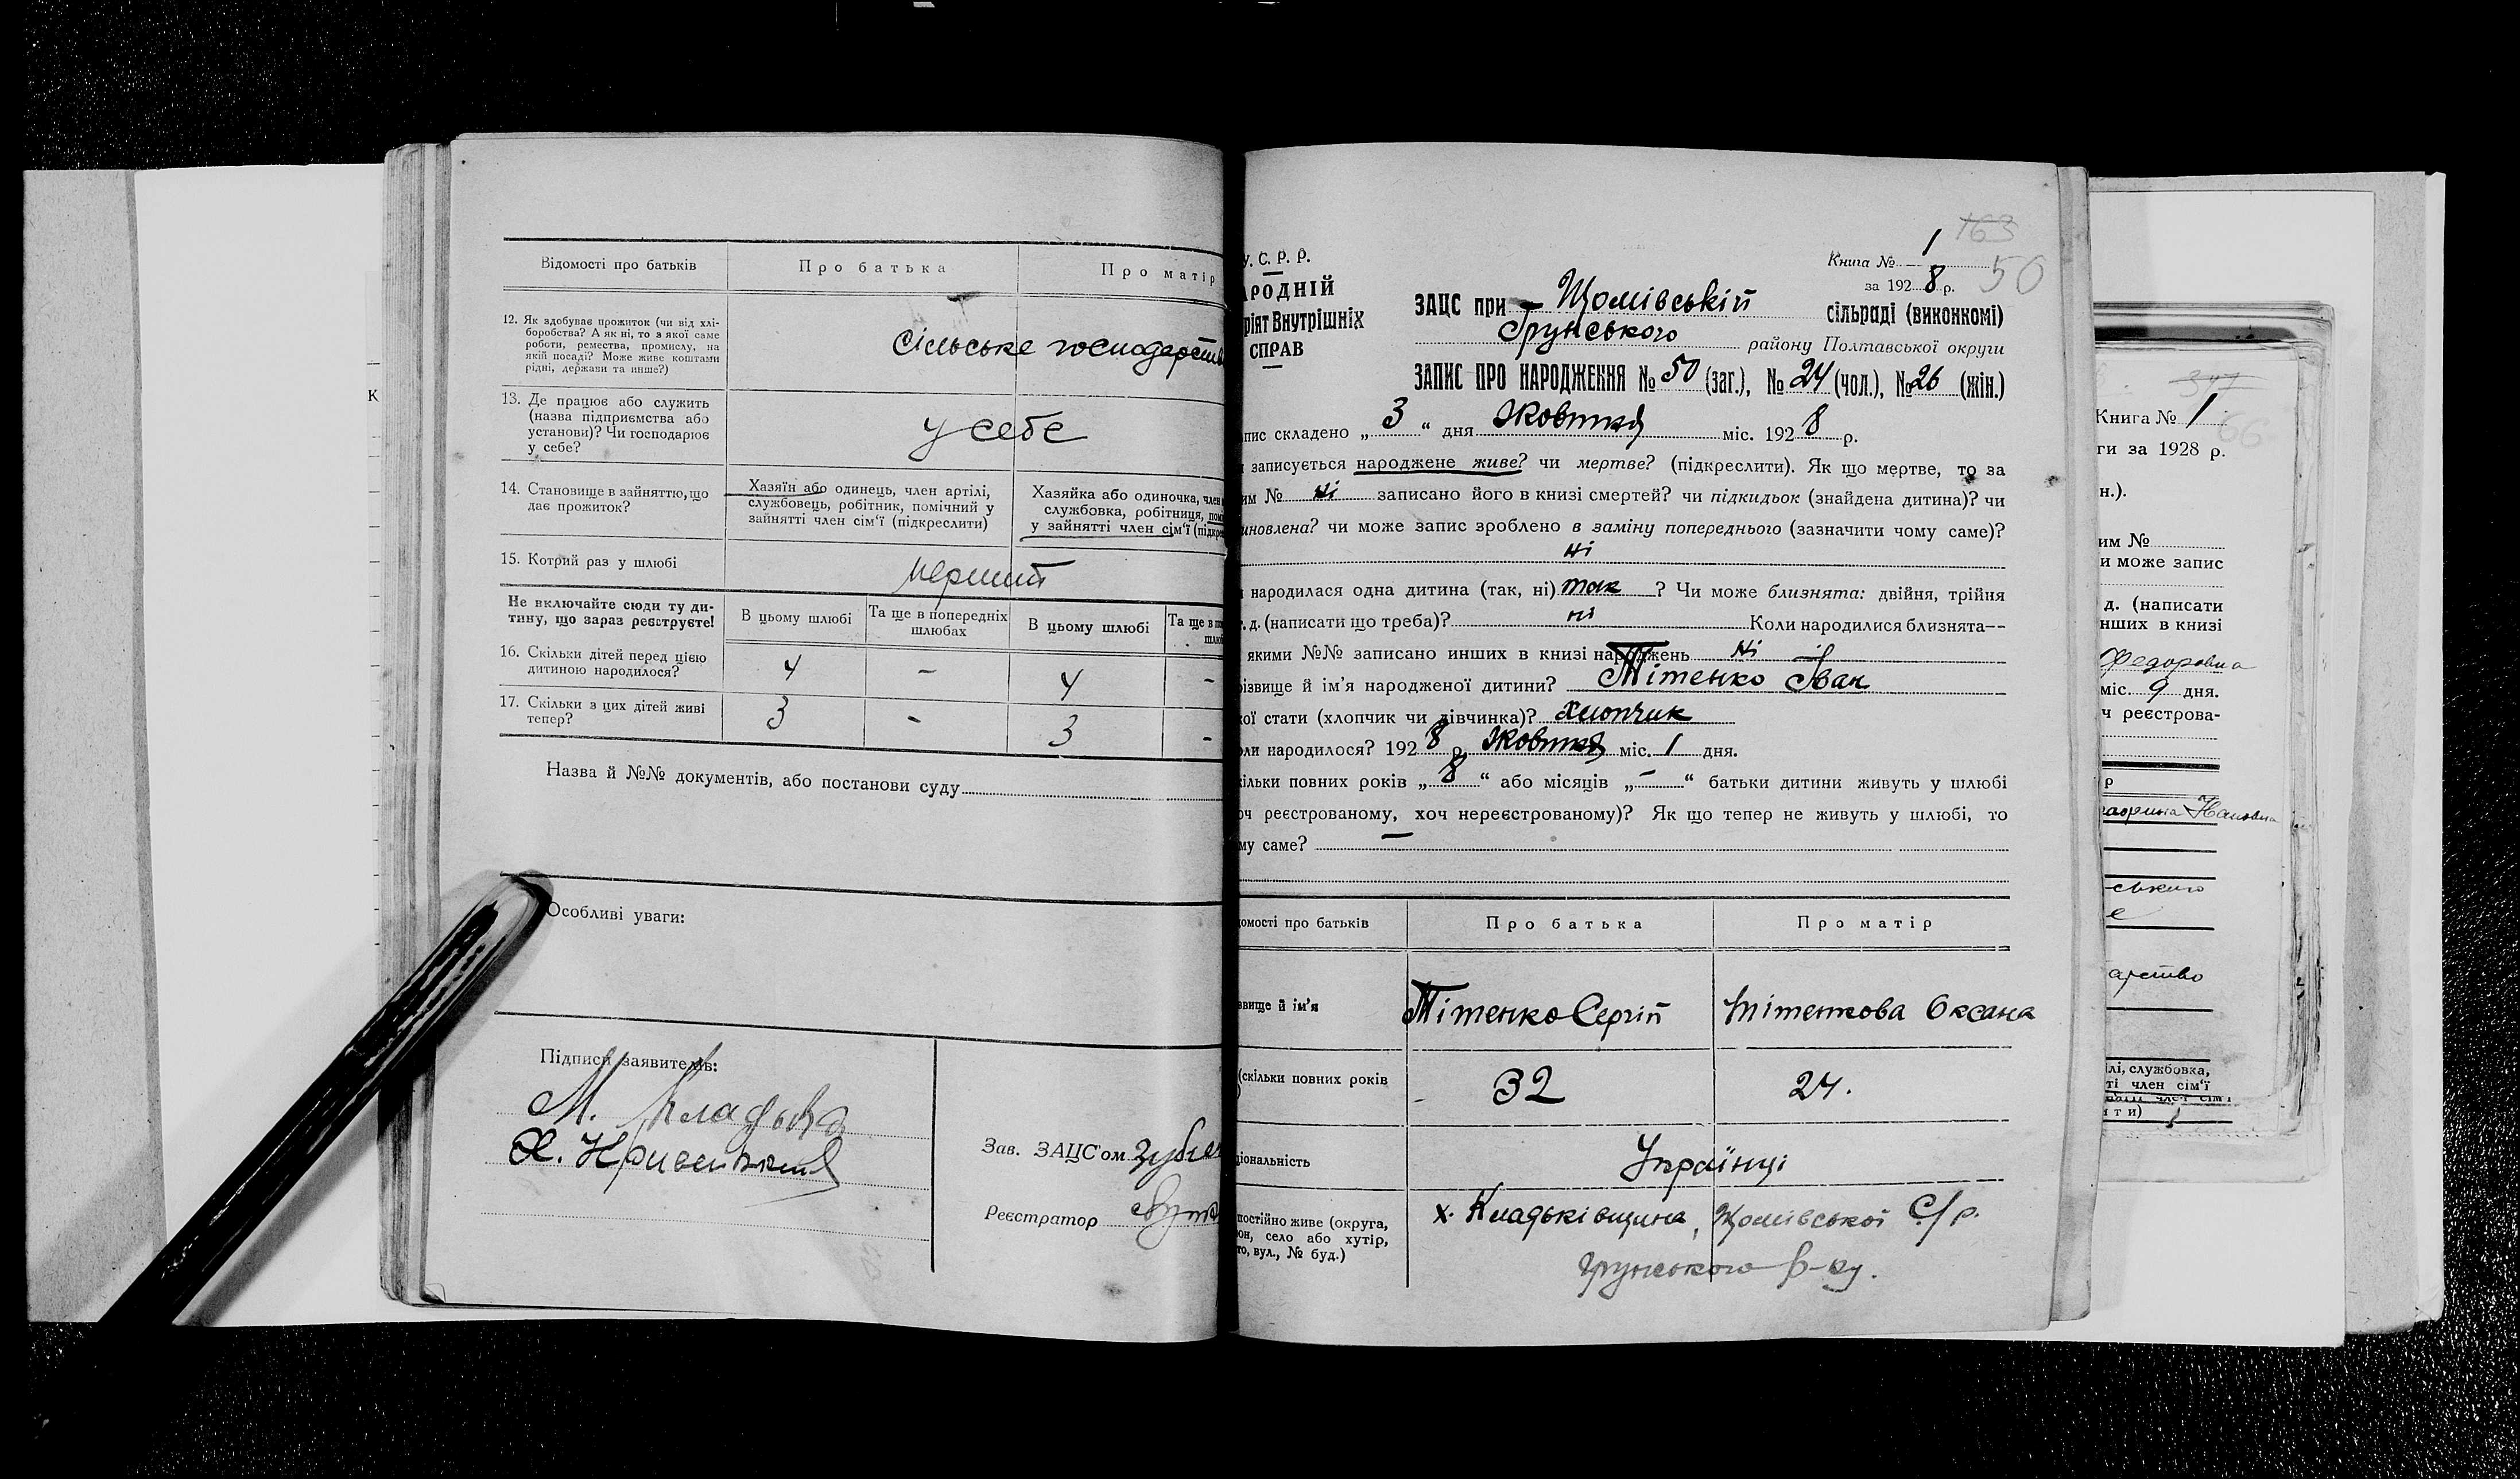 Відомості про батьків
Про батька
Про матір
12. Як здобуває прожиток (чи від хлі-
боробства? А як ні, то з якої саме
роботи, ремества, промислу, на
якій посаді? Може живе коштами
рідні, держави та инше?)
Сільське господарств
13. Де працює або служить
(назва підприємства або
установи)? Чи господарює
у себе?
у себе
14. Становище в зайняттю, що
дає прожиток?
Хазяїн або одинець, член артілі,
службовець, робітник, помічний у
зайнятті член сім'ї (підкреслити)
Хазяйка або одиночка, член
службовка, робітниця, пом
у зайнятті член сім'ї (підкре
15. Котрий раз у шлюбі
перший
Не включайте сюди ту ди-
тину, що зараз реєструєте!
В цьому шлюбі
Та ще в попередніх
шлюбах
В цьому шлюбі
Та ще в по
шлюб
16. Скільки дітей перед цією
дитиною народилося?
4 - 4 -
17. Скільки з цих дітей живі
тепер?
3 - 3 -
Назва й №№ документів, або постанови суду
Особливі уваги:
Підписи заявителів:
М. Кладька
Зав. ЗАЦС'ом Зубен
Реєстратор
163
У. С. Р. Р.
АРОДНІЙ
ріят Внутрішніх
СПРАВ
Книга № 1
за 1928 р. 50
ЗАЦС при Щомівській сільраді (виконкомі)
Грунського району Полтавської округи
ЗАПИС ПРО НАРОДЖЕННЯ № 50 (заг.), № 24 (чол.), № 26 (жін.)
пис складено „3“ дня Жовтня міс. 1928 р.
записується народжене живе? чи мертве? (підкреслити). Як що мертве, то за
им № ні записано його в книзі смертей? чи підкидьок (знайдена дитина)? чи
иновлена? чи може запис зроблено в заміну попереднього (зазначити чому саме)?
ні
народилася одна дитина (так, ні) так ? Чи може близнята: двійня, трійня
т. д. (написати що треба)? ні Коли народилися близнята—
якими №№ записано инших в книзі народжень ні
різвище й ім'я народженої дитини? Тітенко Іван
кої стати (хлопчик чи дівчинка)? Хлопчик
оли народилося? 1928 р. Жовтня міс. 1 дня.
кільки повних років „8“ або місяців „-“ батьки дитини живуть у шлюбі
оч реєстрованому, хоч нереєстрованому)? Як що тепер не живуть у шлюбі, то
му саме? —
домості про батьків
Про батька
Про матір
звище й ім'я
Тітенко Сергій
Тітенкова Оксана
(скільки повних років
32
24.
ціональність
Українці
постійно живе (округа,
он, село або хутір,
то, вул., № буд.)
х. Кладьківщина, Щомівської С/р.
Грунського р-ну.
К
347
Книга № 1
66
ги за 1928 р.
н.).
им №
и може запис
д. (написати
нших в книзі
Федоровна
міс. 9 дня.
ч реєстрова-
р
Ивановна
ського
е
арство
лі, службовка,
ті член сім'ї
ити)